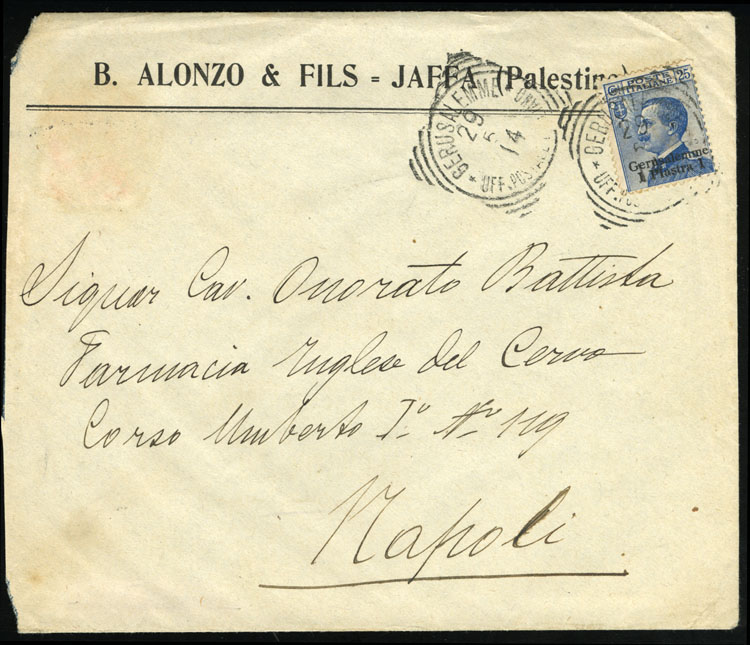 B. ALONZO & FILS = JAFFA (Palestine)
GERUSALEMME
29 5 14
* UFF. POSTALE
GER
* UFF. POS
POSTE ITALIANE 25
Gerusalemme
1 Piastra 1
Signor Cav. Onorato Battista
Farmacia Inglese del Cervo
Corso Umberto I° N° 119
Napoli